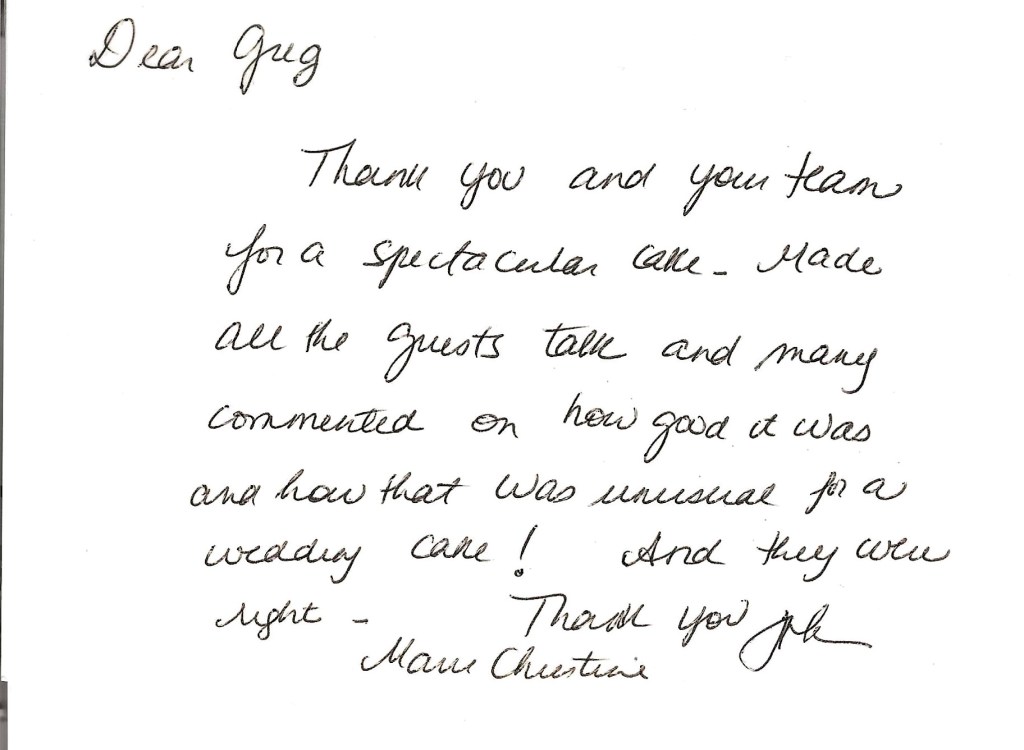 Dear Greg
Thank you and your team
for a spectacular cake - Made
all the guests talk and many
commented on how good it was
and how that was unusual for a
wedding cake! And they were
right - Thank you
Marie Christine